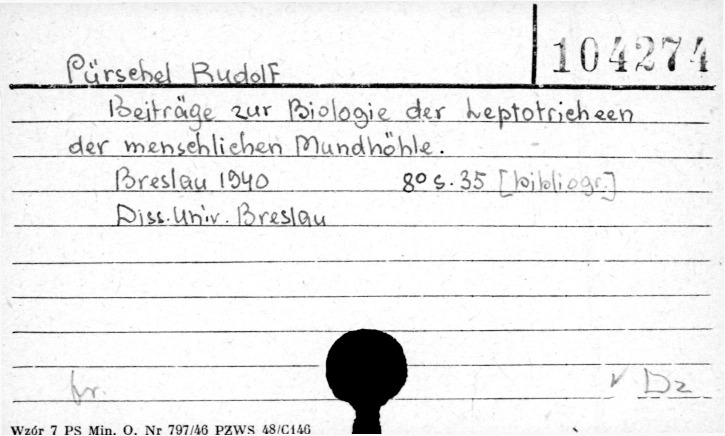 104274
Pürschel Rudolf
Beiträge zur Biologie der Leptotricheen
der menschlichen Mundhöhle.
Breslau 1940 8° s. 35 [bibliogr.]
Diss. Univ. Breslau
fr. ✓ Dz
Wzór 7 PS Min. O. Nr 797/46 PZWS 48/C146